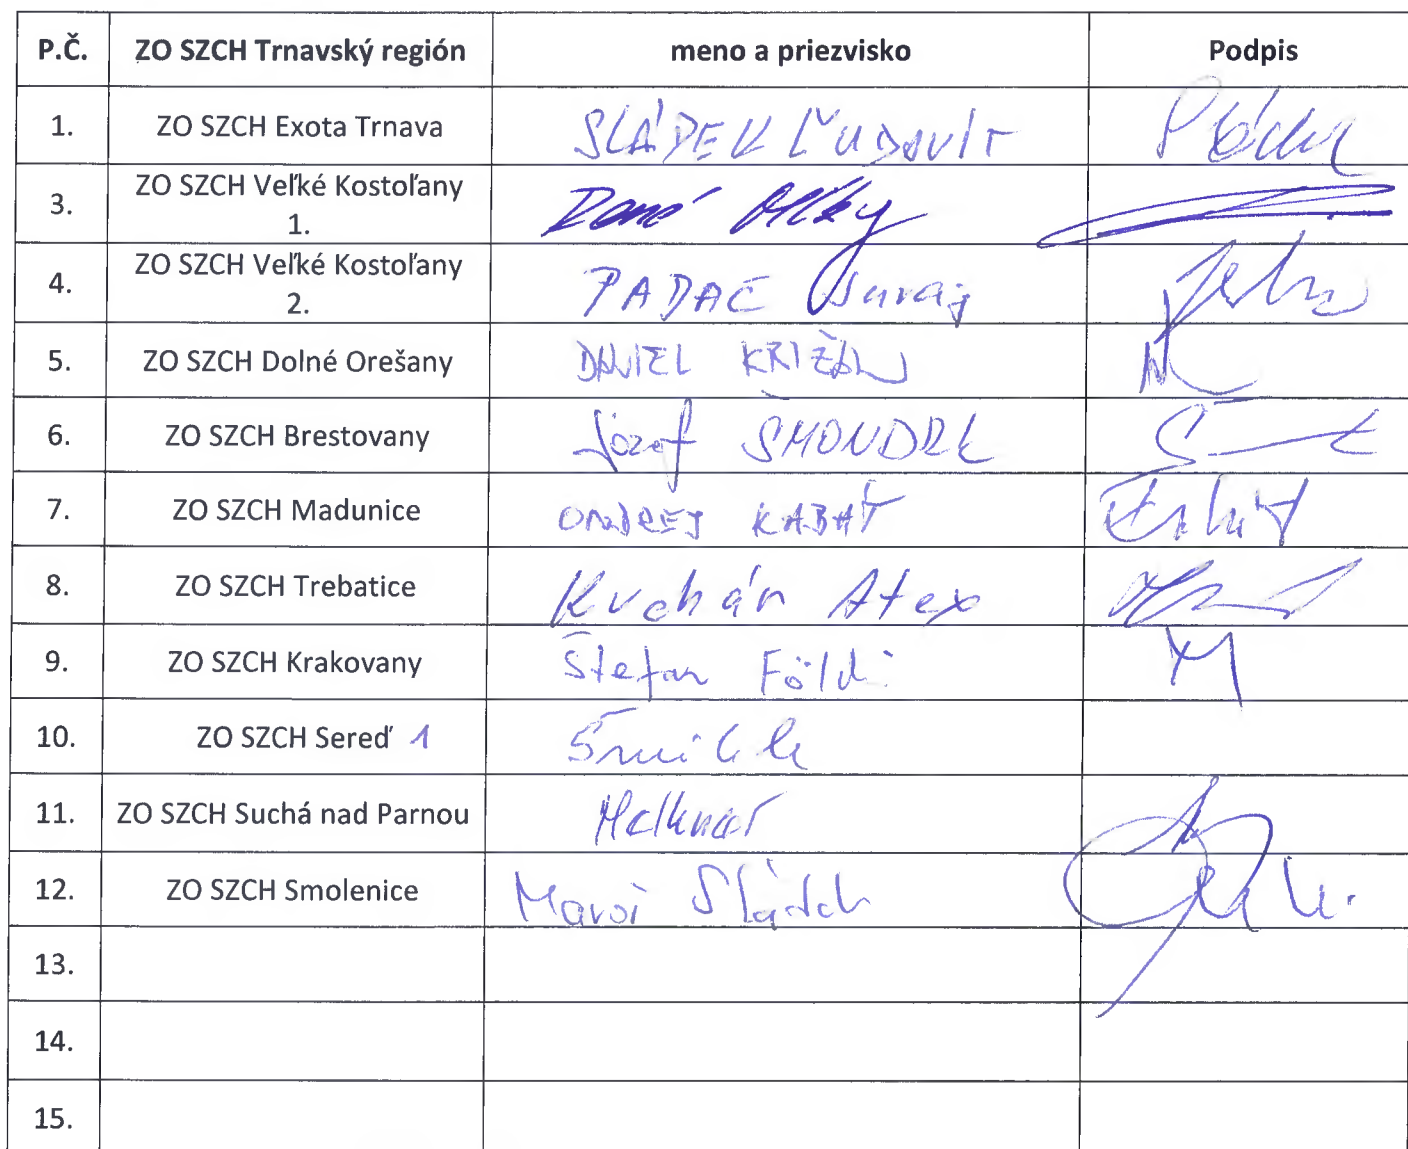 P.Č. ZO SZCH Trnavský región meno a priezvisko Podpis
1. ZO SZCH Exota Trnava SLÁDEK ĽUDOVÍT
3. ZO SZCH Veľké Kostoľany
1.
4. ZO SZCH Veľké Kostoľany PADAČ Juraj
2.
5. ZO SZCH Dolné Orešany DANIEL KRIŽAN
6. ZO SZCH Brestovany Józef ŠMONDRK
7. ZO SZCH Madunice ONDREJ KABÁT
8. ZO SZCH Trebatice Kuchán Alex
9. ZO SZCH Krakovany Štefan Földi
10. ZO SZCH Sereď 1
11. ZO SZCH Suchá nad Parnou
12. ZO SZCH Smolenice Maroš Sládek
13.
14.
15.